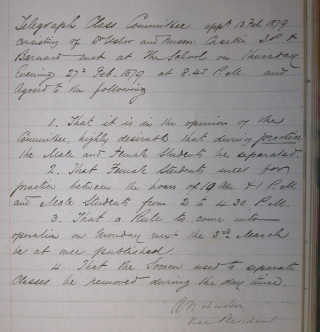 Telegraph Class Committee appt 13 Feb. 1879
consisting of Dr Usher and Messrs Caselli J.P. &
Barnard met at the School on Thursday
Evening 27th Feb. 1879, at 8.45 P.M. and
agreed to the following
1. That it is in the opinion of the
Committee, highly desirable that during practice
the Male and Female Students be separated.
2. That Female Students meet for
practice between the hours of 10 AM. & 1 P.M.
and Male Students from 2 to 4.30 P.M.
3. That a Rule to come into
operation on Monday next the 3rd March
be at once published.
4. That the Screen used to separate
Classes be removed during the day time.
Vice President